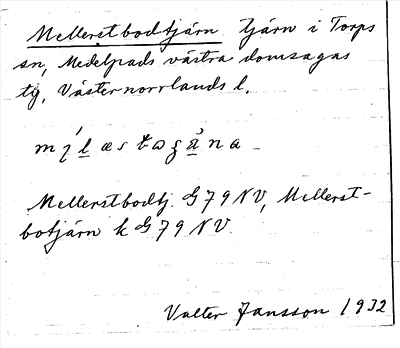 Mellerstbodtjärn Tjärn i Torps
sn, Medelpads västra domsagas
tg, Västernorrlands l.
Mellerstbodtj. G79NV, Mellerst-
botjärn k G79NV.
Valter Jansson 1932